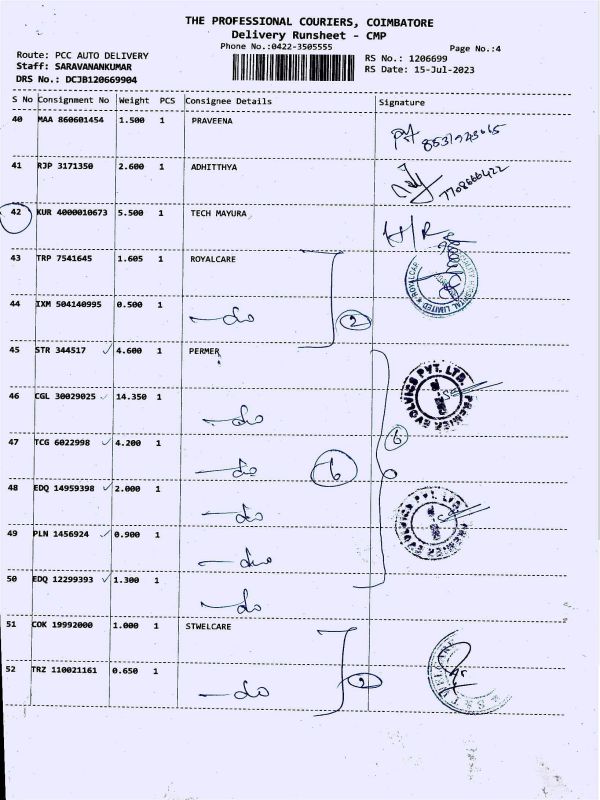 THE PROFESSIONAL COURIERS, COIMBATORE
Delivery Runsheet - CMP
Phone No.:0422-3505555 Page No.:4
Route: PCC AUTO DELIVERY RS No.: 1206699
Staff: SARAVANANKUMAR RS Date: 15-Jul-2023
DRS No.: DCJB120669904
S No Consignment No Weight PCS Consignee Details Signature
40 MAA 860601454 1.500 1 PRAVEENA
41 RJP 3171350 2.600 1 ADHITTHYA
7708666422
42 KUR 4000010673 5.500 1 TECH MAYURA
43 TRP 7541645 1.605 1 ROYALCARE
44 IXM 504140995 0.500 1 —do 2
45 STR 344517 ✓ 4.600 1 PERMER
PREMIER EVOLVICS PVT. LTD.
46 CGL 30029025 ✓ 14.350 1 —do
6
47 TCG 6022998 ✓ 4.200 1 —do 6
48 EDQ 14959398 ✓ 2.000 1 —do
PREMIER EVOLVICS PVT. LTD.
49 PLN 1456924 ✓ 0.900 1 —do
50 EDQ 12299393 ✓ 1.300 1 —do
51 COK 19992000 1.000 1 STWELCARE
52 TRZ 110021161 0.650 1 —do 2